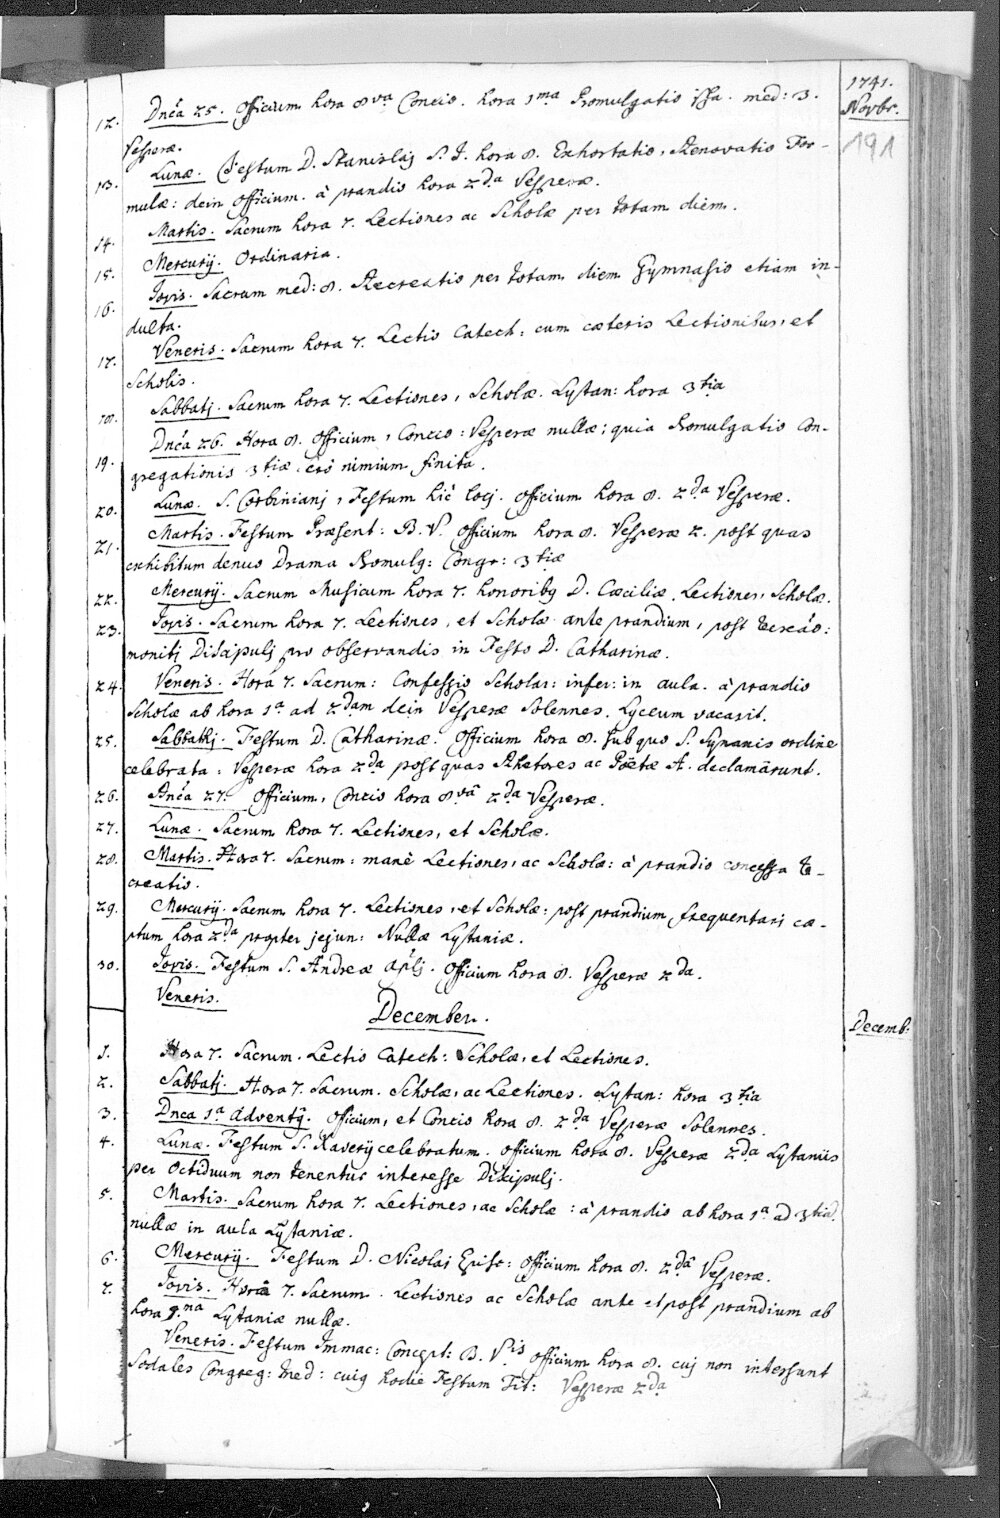 1741.
Novbr.
191
12. Dnca 25. Officium hora 8va Concio. hora 1ma Promulgatio ssa. med: 3.
Vesperæ.
13. Lunæ. Festum D. Stanislaj S. J. hora 8. Exhortatio, Renovatio For-
mulæ: dein officium. à prandio hora 2da Vesperæ.
14. Martis. Sacrum hora 7. Lectiones ac Scholæ per totam diem.
15. Mercurij. Ordinaria.
16. Jovis. Sacrum med: 8. Recreatio per totam diem Gymnasio etiam in-
dulta.
17. Veneris. Sacrum hora 7. Lectio Catech: cum cæteris Lectionibus, et
Scholis.
18. Sabbatj. Sacrum hora 7. Lectiones, Scholæ. Lytan: hora 3tia
19. Dnca 26. Hora 8. officium, Concio: Vesperæ nullæ; quia Promulgatio Con-
gregationis 3tiæ nimium finita.
20. Lunæ. S. Corbinianj, Festum hic locj. officium hora 8. 2da Vesperæ.
21. Martis. Festum Præsent: B. V. officium hora 8. Vesperæ 2. post quas
exhibitum denuo Drama Promulg: Congr: 3tiæ
22. Mercurij. Sacrum Musicum hora 7. honoribg D. Cæciliæ. Lectiones, Scholæ.
23. Jovis. Sacrum hora 7. Lectiones, et Scholæ ante prandium, post recreao:
monitj Discipulj pro observandis in Festo D. Catharinæ.
24. Veneris. Hora 7. Sacrum: Confessio Scholar: infer: in aula. à prandio
Scholæ ab hora 1a ad 2dam dein Vesperæ Solennes. Lyceum vacavit.
25. Sabbathj. Festum D. Catharinæ. Officium hora 8. sub quo S. Synaxis ordine
celebrata: Vesperæ hora 2da post quas Rhetores ac Poëtæ A. declamârunt.
26. Dnca 27. Officium, Concio hora 8va 2da Vesperæ.
27. Lunæ. Sacrum hora 7. Lectiones, et Scholæ.
28. Martis. Hora 7. Sacrum: manè Lectiones, ac Scholæ: à prandio concessa re-
creatio.
29. Mercurij. Sacrum hora 7. Lectiones, et Scholæ: post prandium frequentarj cæ-
ptum hora 2da propter jejun: Nullæ Lytaniæ.
30. Jovis. Festum S. Andreæ Aplj. Officium hora 8. Vesperæ 2da.
Veneris.
December.
Decemb:
1. Hora 7. Sacrum. Lectio Catech: Scholæ, et Lectiones.
2. Sabbatj. Hora 7. Sacrum. Scholæ, ac Lectiones. Lytan: hora 3tia
3. Dnca 1a Adventg. Officium, et Concio hora 8. 2da Vesperæ Solennes.
4. Lunæ. Festum S. Xaverij celebratum. officium hora 8. Vesperæ 2da Lytaniis
per Octiduum non tenentur interesse Discipulj.
5. Martis. Sacrum hora 7. Lectiones, ac Scholæ: à prandio ab hora 1a ad 3tiam
nullæ in aula Lytaniæ.
6. Mercurij. Festum D. Nicolaj Episc: Officium hora 8. 2da Vesperæ.
7. Jovis. Hora 7. Sacrum. Lectiones ac Scholæ ante et post prandium ab
hora Lytaniæ nullæ.
Veneris. Festum Immac: Concept: B. Vis officium hora 8. cuj non intersunt
Sodales Congreg: Med: cuig hodie Festum Tit: Vesperæ 2da